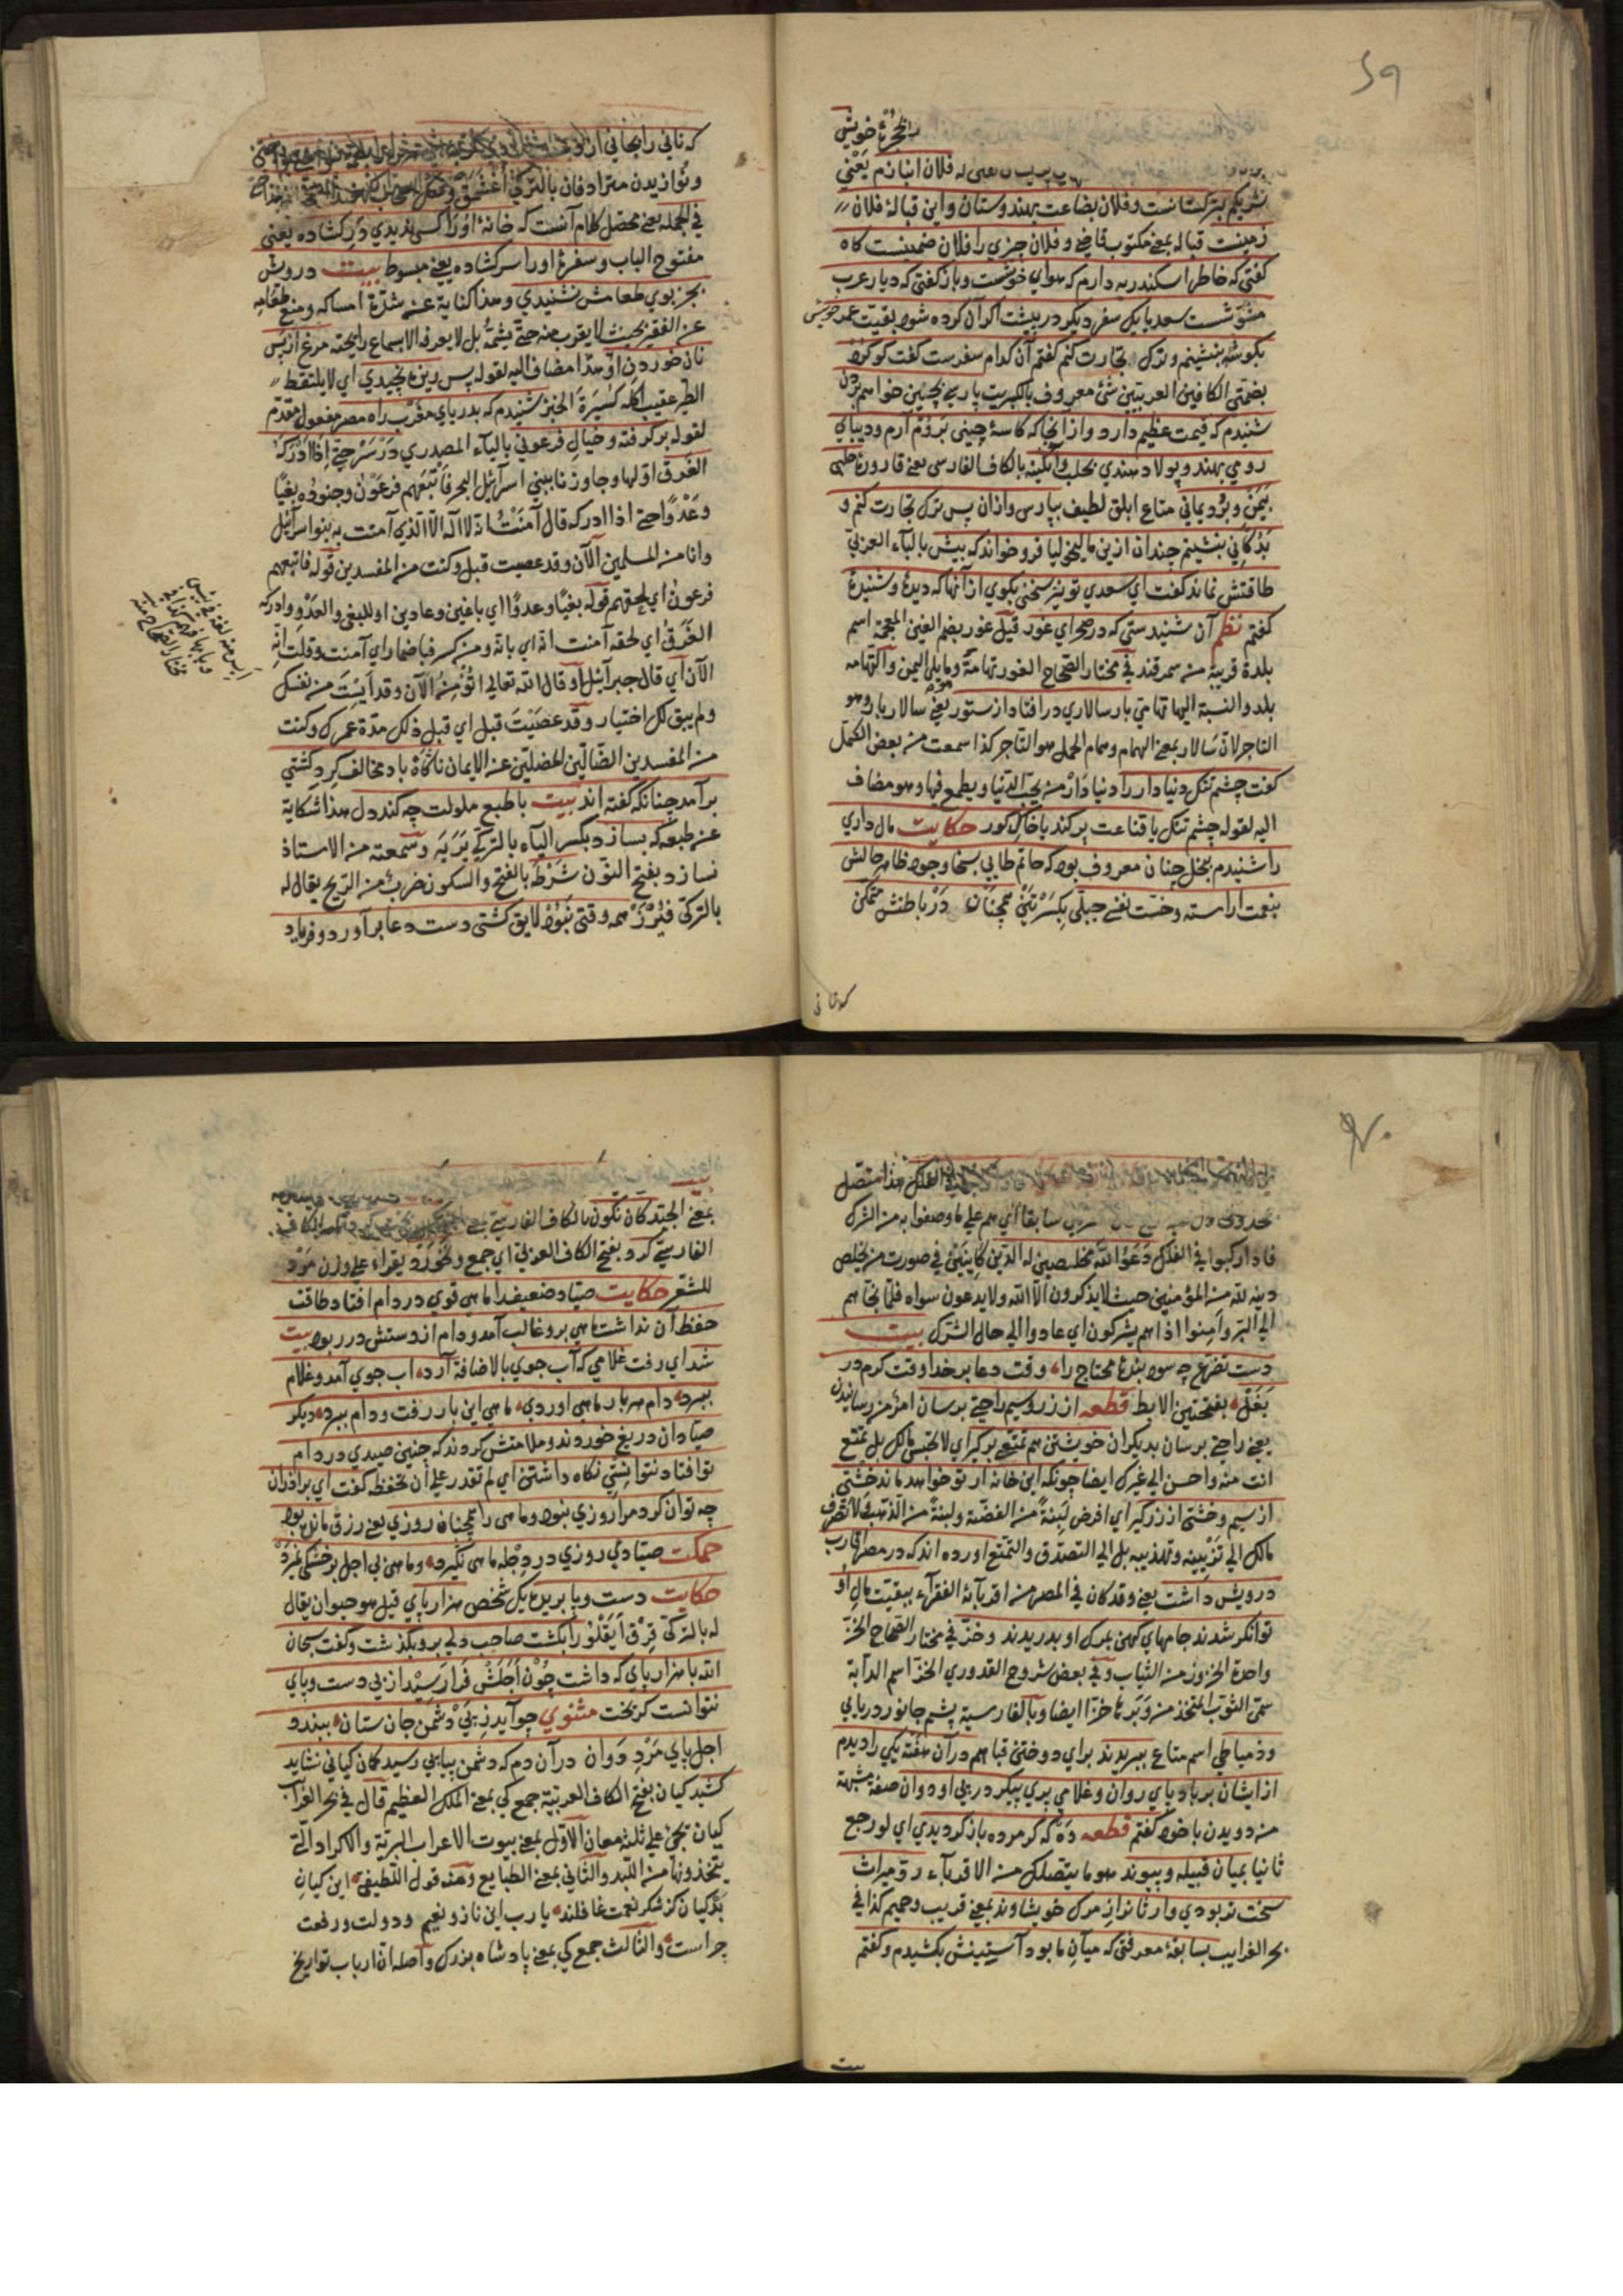 بحجرهٔ خویش
فلان انبازم یعنی
شریکم بترکستانست و فلان بضاعت بهندوستان و این قبالهٔ فلان
زمینست قباله بمعنی مکتوب قاضی و فلان چیزی را فلان ضمینست گاه
گفتی که خاطر اسکندریه دارم که هوای خوشست و باز گفتی که دیار عرب
مشوّشست سعدیا یک سفر دیگر در پیشست اگر آن کرده شود بقیت عمر خویش
بگوشهٔ بنشینم و ترک تجارت کنم گفتم آن کدام سفرست گفت گوگرد
بضمتی الکافین العربیتین شئ معروف بالکبریت پارسی بچین خواهم بردن
شنیدم که قیمت عظیم دارد و از آنجا که کاسهٔ چینی بَروُم آرم و دیبای
رومی بهند و پولاد هندی بحلب و آبگینه بالکاف الفارسی یعنی قارورهٔ حلبی
بیَمن و بُرد یمانی متاع ابلق لطیف بپارس و ازان پس ترک تجارت کنم و
بدکانی بنشینم چندان ازین مالیخولیا فرو خواند که بیش بالباء العربی
طاقتش نماند گفت ای سعدی تو نیز سخنی بگوی از آنها که دیدهٔ و شنیدهٔ
گفتم نظم آن شنیدستی که در صحرای غور قیل غور بضم الغین المعجمة اسم
بلدة قریبة من سمرقند فی مختار الصحاح الغور تهامة وما یلی الیمن واکتهامه
بلد والنسبة الیها تهامی بار سالاری در افتاد از ستور یعنی سالار بار وهو
التاجر لان سالار بمعنی الهمام وهمام الحمل هو التاجر کذا سمعت من بعض الکمّل
گفت چشم تنک دنیا دار را دنیا دار من یحب الدنیا ویطمع فیها وهو مضاف
الیه لقوله چشم تنک یا قناعت پر کند یا خاک گور حکایت مال داری
را شنیدم ببخل چنان معروف بود که حاتم طایی بسخا وجود ظاهر حالش
بنعمت آراسته وخسّت نفس جبلّی بکسرتین همچنان در باطنش متمکن
که نانی را بجانی از
ونوازیدن مترادفان بالترکی
فی الجمله یعنی محصّل کلام آنست که خانهٔ او را کسی ندیدی در گشاده یعنی
مفتوح الباب وسفرهٔ او را سر گشاده یعنی مبسوط بیت درویش
بجز بوی طعامش نشنیدی وهذا کنایة عن شدّة امساکه ومنع طعامه
عن الفقیر بحیث لا یقرب منه حتی یشمّه بل لا یعرفه الا بسماع رایحته مرغ از پس
نان خوردن او هذا مضاف الیه لقوله پس ریزه نچیدی ای لا یلتقط
الطیر عقیب اکله کسیرة الخبز شنیدم که بدریای مغرب راه مصر مفعول مقدّم
لقوله برگرفته وخیال فرعونی بالیاء المصدری در سر حتی اذا ادرکه
الغرق اوّلها وجاوزنا ببنی اسرائیل البحر فاتبعهم فرعون وجنوده بغیًا
وعدوًا حتی اذا ادرکه قال آمنت انه لا اله الا الذی آمنت به بنوا اسرائیل
وانا من المسلمین آلآن وقد عصیت قبل وکنت من المفسدین قوله فاتبعهم
فرعون ای لحقهم قوله بغیًا وعدوًا ای باغین وعادین او للبغی والعدو وادرکه
الغرق ای لحقه آمنت انه ای بانه ومن کسر فباضمار ای آمنت وقلت انه
آلآن ای قال جبرآئیل او قال الله تعالی اتؤمن الآن وقد أیست من نفسک
ولم یبق لک اختیار وقد عصیت قبل ای قبل ذلک مدّة عمرک وکنت
من المفسدین الضالّین المضلّین عن الایمان ناگاه باد مخالف گرد کشتی
برآمد چنانکه گفته اند بیت با طبع ملولت چه کند دل هذا شکایة
عن طبعه که بسازد بکسر الباء بالترکی وسمعته من الاستاذ
نسازد بفتح النون شرطه بالفتح والسکون ضرب من الریح یقال له
بالترکی همه وقتی نبود لایق کشتی دست دعا برآورد وفریاد
مختار الصحاح
هذا متصل
سابقا ای هم علی ما وصفوا به من الشرک
فاذا رکبوا فی الفلک دعوا الله مخلصین له الدین کاینین فی صورت من یخلص
دینه لله من المؤمنین حیث لا یذکرون الا الله ولا یدعون سواه فلما نجاهم
الی البر وآمنوا اذا هم یشرکون ای عادوا الی حال الشرک بیت
دست تضرع چه سود بندهٔ محتاج را وقت دعا بر خدا وقت کرم در
بغل بفتحتین الابط قطعه از زر وسیم راحتی برسان امر من رسانیدن
یعنی راحتی برسان بدیکران خویشتن هم تمتّعی برگیر ای لا تحبس مالک بل تمتع
انت منه واحسن الی غیرک ایضا چونکه این خانه از تو خواهد ماند خشتی
از سیم وخشتی از زر گیر ای افرض لبنة من الفضة ولبنة من الذهب ولا تصرف
مالک الی تزیینه وتهذیبه بل الی التصدّق والتمتع آورده اند که در مصر اقارب
درویش داشت یعنی وقد کان فی المصر من اقربائه الفقراء ببقیت مال او
توانگر شدند جامهای کهن بمرک او بدریدند وخز فی مختار الصحاح الخز
واحدة الخزوز من الثیاب وفی بعض شروح القدوری الخز اسم الدابة
سمّی الثوب المتخذ من وبرها خزا ایضا وبالفارسیة پشم جانور دریایی
ودمیاطی اسم متاع ببریدند برای دوختن قبا هم در آن هفته یکی را دیدم
از ایشان بر باد پای روان وغلامی پری پیکر در پی او دوان صفة مشبهة
من دویدن با خود گفتم قطعه وه که گر مرده باز گردیدی ای لو رجع
ثانیا بمیان قبیله وپیوند هو ما یتصلک من الاقرباء ردّ میراث
سخت تر بودی وارثانرا ز مرک خویشاوند بمعنی قریب وحمیم کذا فی
بحر الغرایب بسابقهٔ معرفتی که میان ما بود آستینش بکشیدم وگفتم
بیت
بمعنی الجیّد کان نگون بالکاف الفارسیة
الفارسیة گرد بفتح الکاف العربی ای جمع ونخورد یقراء علی وزن مرد
للشعر حکایت صیّاد ضعیف را ماهی قوی در دام افتاد طاقت
حفظ آن نداشت ماهی برو غالب آمد ودام از دستش در ربود بیت
شد ای رفت غلامی که آب جوی بالاضافة آرد آب جوی آمد وغلام
ببرد دام هر بار ماهی آوردی ماهی این بار رفت ودام ببرد دیگر
صیّادان دریغ خوردند وملامتش کردند که چنین صیدی در دام
تو افتاد نتوانستی نگاه داشتن ای لم تقدر علی ان تحفظه گفت ای برادران
چه توان کرد مرا روزی نبود وماهی را همچنان روزی یعنی رزق مانل بود
حکمت صیّادی روزی در دجله ماهی نگیرد وماهی بی اجل بر خشکی نمرد
حکایت دست وپا بریدهٔ یک شخص هزار پای قیل هو حیوان یقال
له بالترکی قرق ایاقلو را بکشت صاحب دلی برو بگذشت وگفت سبحان
الله با هزار پای که داشت چون اجلش فرا رسید از بی دست وپای
نتوانست گریخت مثنوی چو آید ز پی دشمن جان ستان ببندد
اجل پای مرد دوان در آن دم که دشمن پیاپی رسید کمان کیانی نشاید
کشید کیان بفتح الکاف العربیة جمع کی بمعنی الملک العظیم قال فی بحر الغرائب
کیان یجئ علی ثلثة معان الاوّل بمعنی بیوت الاعراب البریّة والاکراد التی
یتخذونها من اللبد والثانی بمعنی الطبایع ومنه قول اللطیفی این کیان
بدکیان کز شکر نعمت غافلند یا رب این ناز ونعیم ودولت ورفعت
چراست والثالث جمع کی بمعنی پادشاه بزرک واصله ان ارباب تواریخ